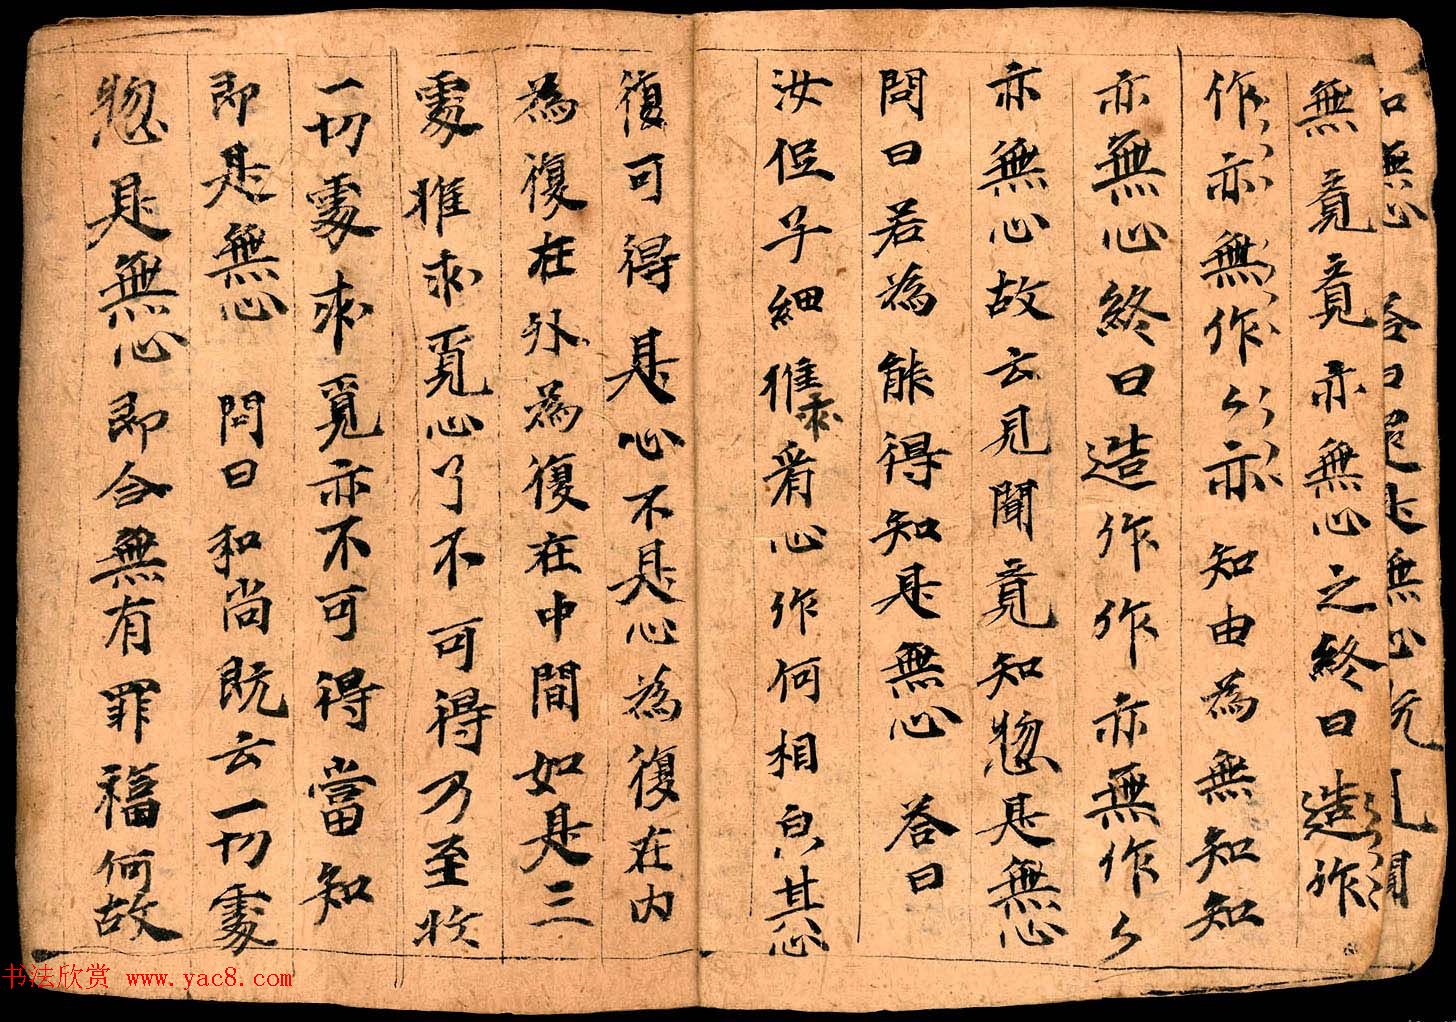 無心 答曰 是無心既見聞
無覺覺亦無心之終日造作
作亦無作〻亦知由為無知知
亦無心終日造作作亦無作〻
亦無心故云見聞覺知惣是無心
問曰若為能得知是無心 答曰
汝但子細推求看心作何相皃其心
復可得是心不是心為復在內
為復在外為復在中間如是三
處推求覓心了不可得乃至於
一切處求覓亦不可得當知
即是無心 問曰和尚既云一切處
惣是無心即合無有罪福何故
书法欣赏 www.yac8.com